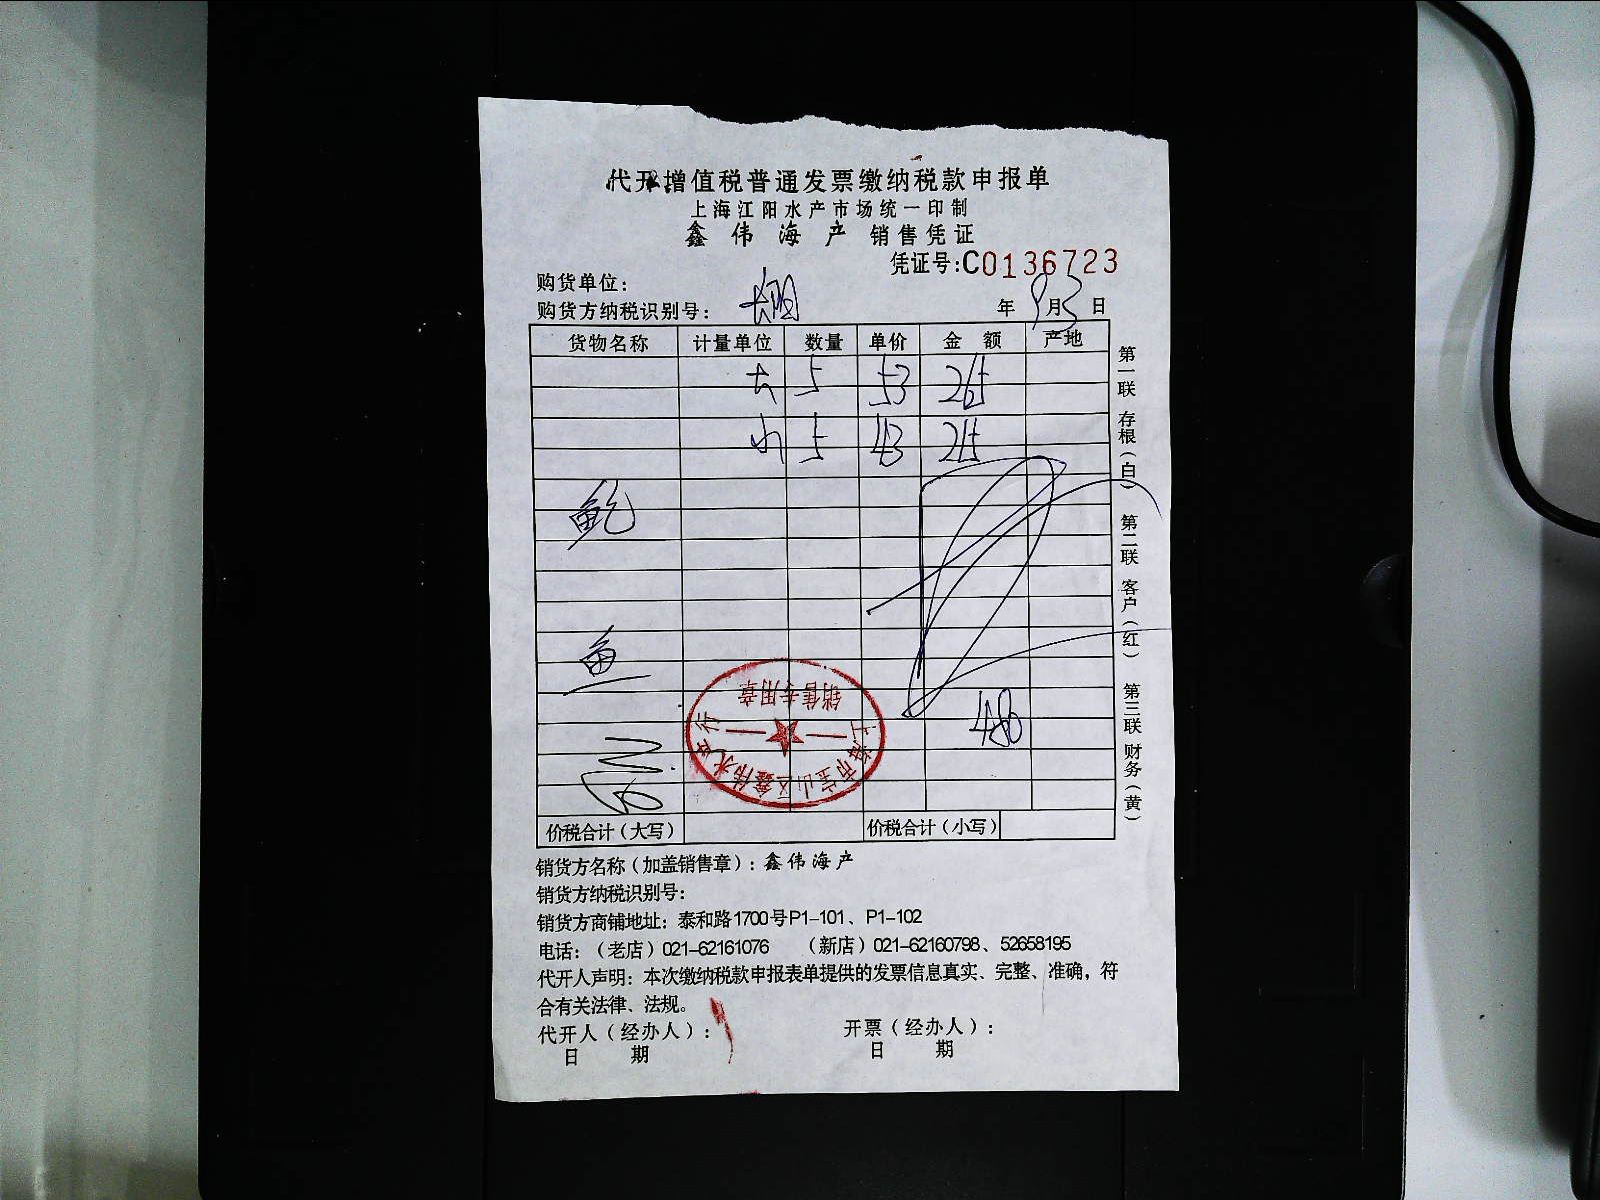 代开增值税普通发票缴纳税款申报单
上海江阳水产市场统一印制
鑫伟海产 销售凭证
凭证号:C0136723
购货单位:
购货方纳税识别号:
年 9月3日
货物名称 计量单位 数量 单价 金额 产地
大 5 53 265
小 5 43 215
鲍
鱼
480
价税合计(大写) 价税合计(小写)
第一联 存根(白) 第二联 客户(红) 第三联 财务(黄)
上海市宝山区鑫伟水产行
销售专用章
销货方名称(加盖销售章):鑫伟海产
销货方纳税识别号:
销货方商铺地址:泰和路1700号P1-101、P1-102
电话:(老店)021-62161076 (新店)021-62160798、52658195
代开人声明:本次缴纳税款申报表单提供的发票信息真实、完整、准确,符
合有关法律、法规。
代开人(经办人): 开票(经办人):
日期 日期